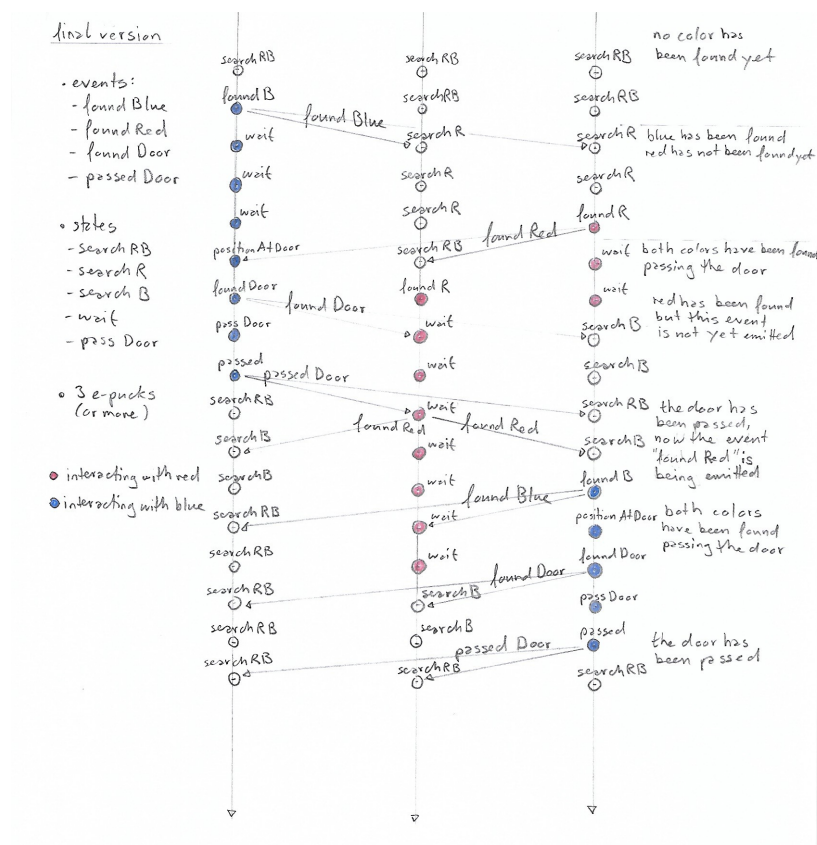 final version
• events:
- found Blue
- found Red
- found Door
- passed Door
• states
- search RB
- search R
- search B
- wait
- pass Door
• 3 e-pucks
(or more)
interacting with red
interacting with blue
search RB
found B
wait
wait
wait
position At Door
found Door
pass Door
passed
search RB
search B
search B
search RB
search RB
search RB
search RB
search RB
found Blue
found Door
passed Door
found Red
search RB
search RB
search R
search R
search R
search RB
found R
wait
wait
wait
wait
wait
wait
wait
search B
search B
search RB
found Red
found Red
found Blue
found Door
passed Door
search RB
search RB
search R
search R
found R
wait
wait
search B
search B
search RB
search B
found B
position At Door
found Door
pass Door
passed
search RB
no color has
been found yet
blue has been found
red has not been found yet
both colors have been found
passing the door
red has been found
but this event
is not yet emitted
the door has
been passed,
now the event
"found Red" is
being emitted
both colors
have been found
passing the door
the door has
been passed